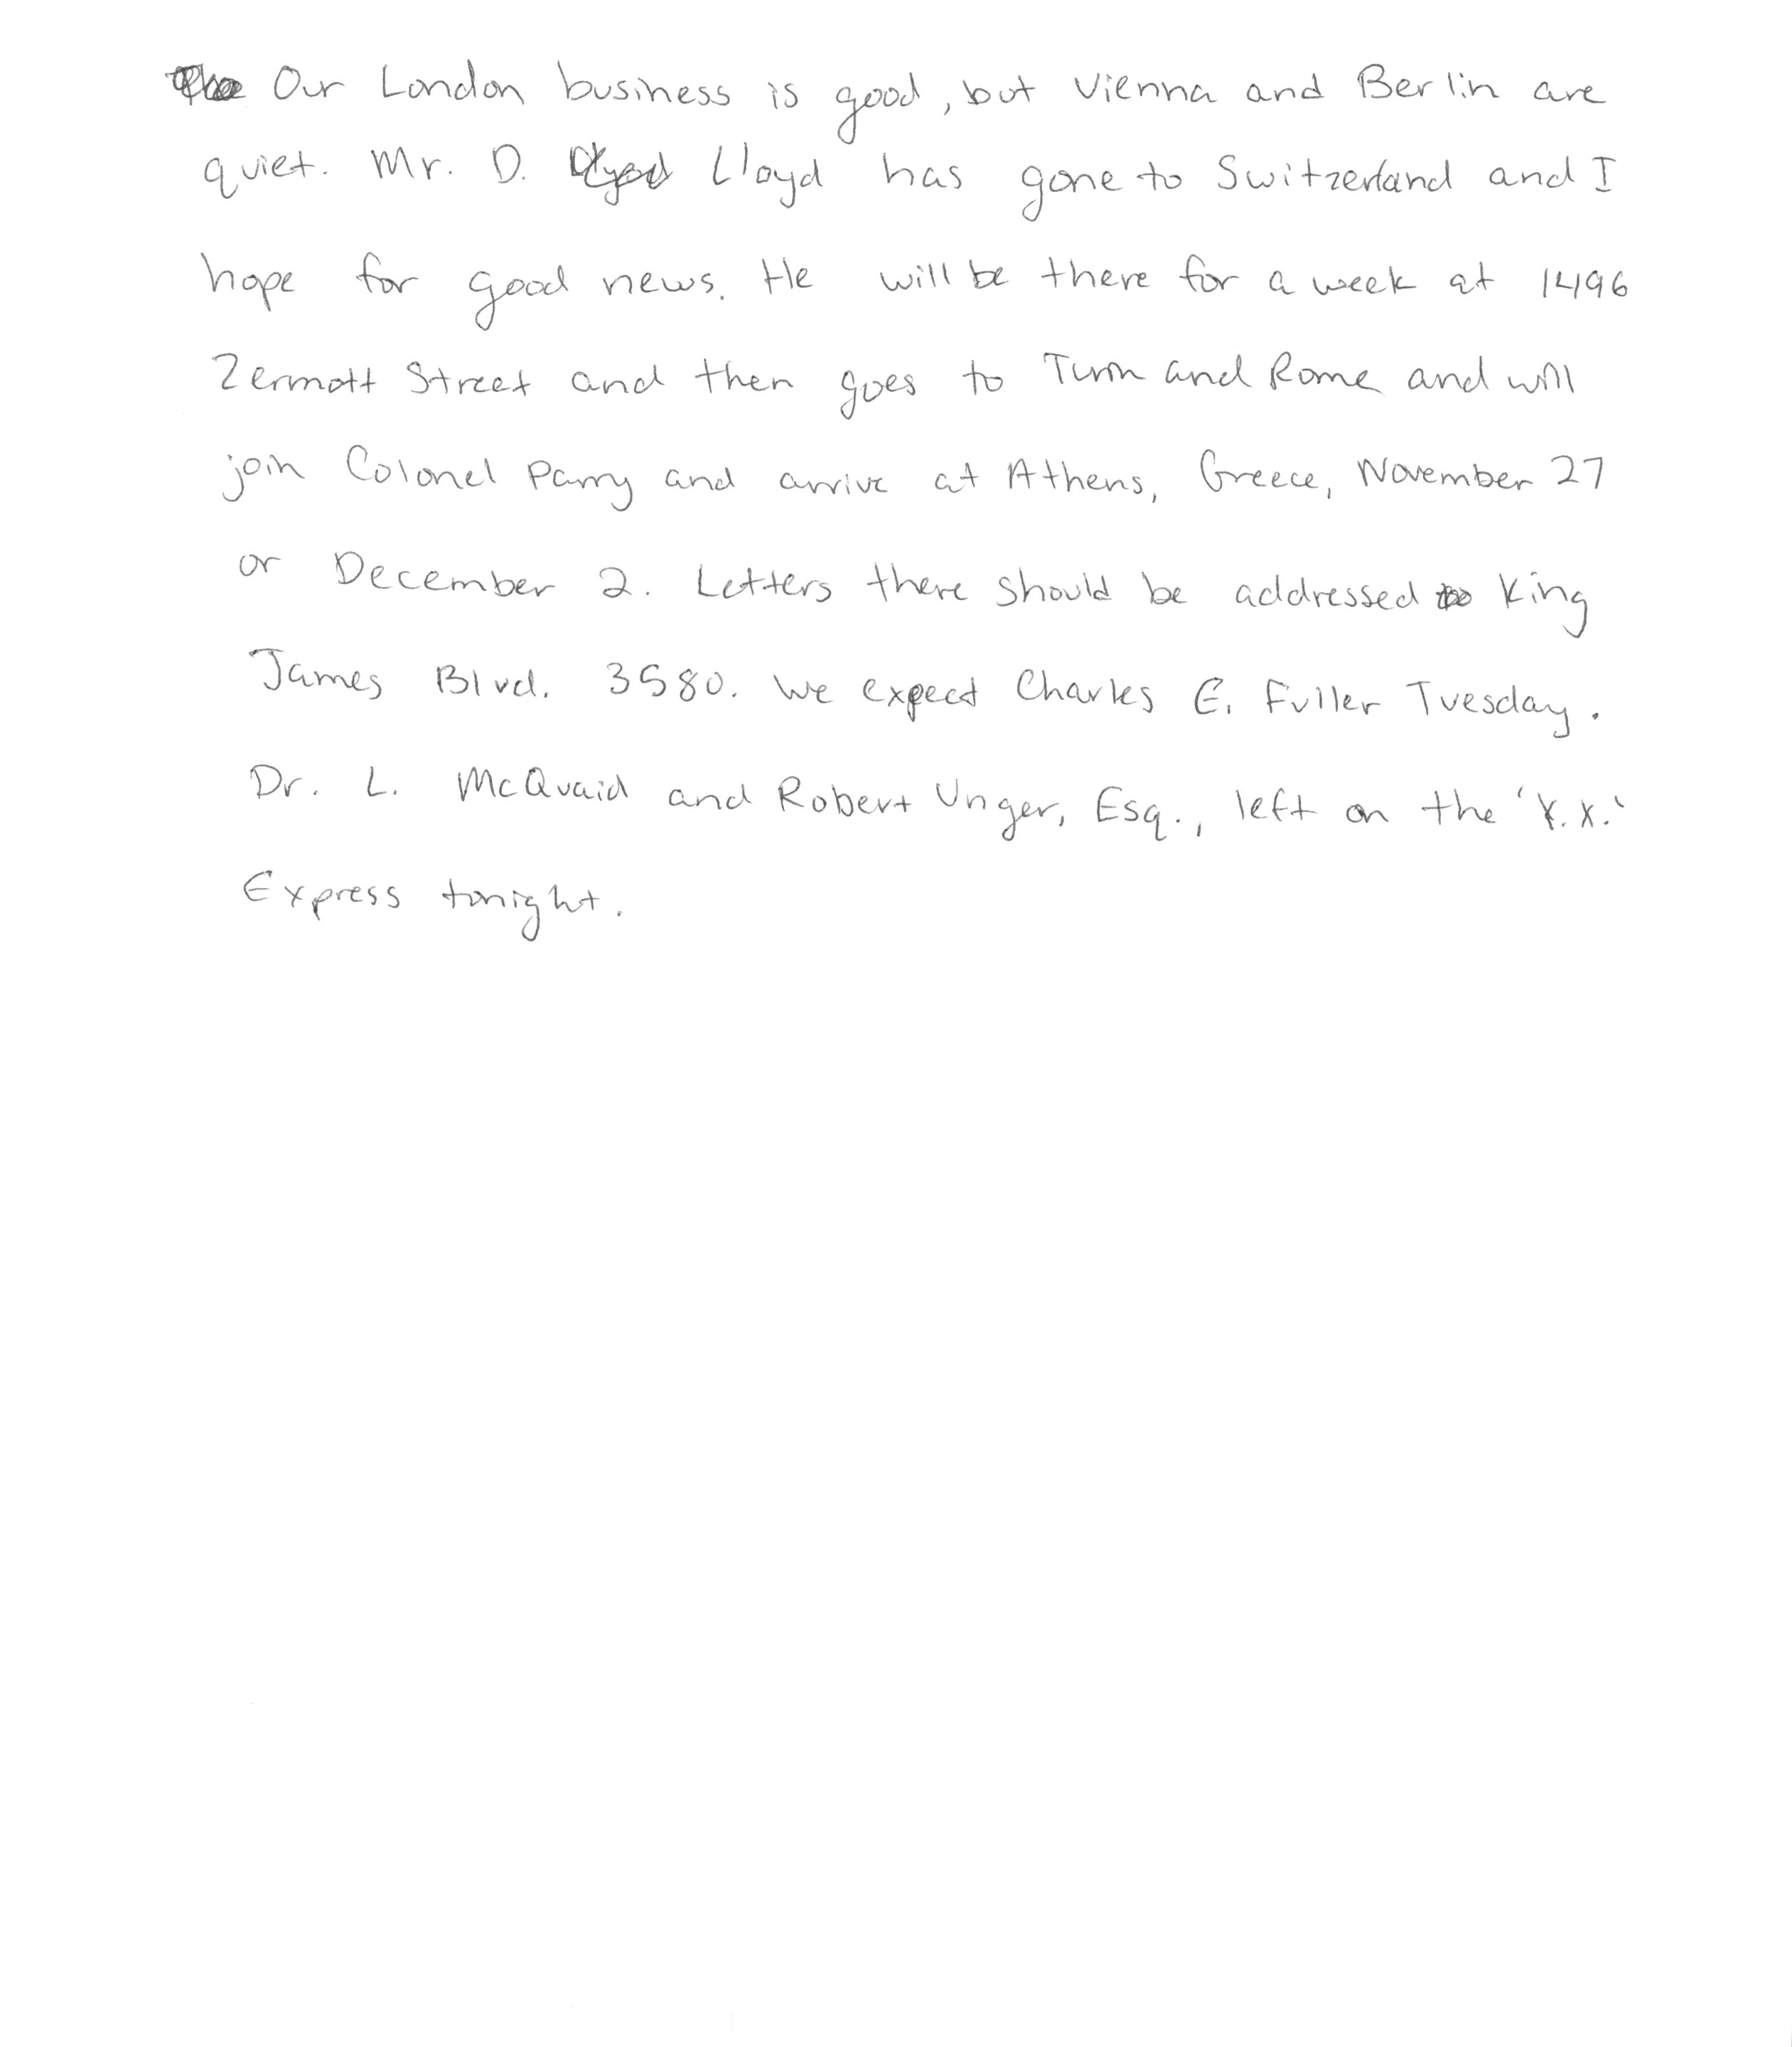 Our London business is good, but Vienna and Berlin are
quiet. Mr. D. Lloyd has gone to Switzerland and I
hope for good news. He will be there for a week at 1496
Zermott Street and then goes to Turin and Rome and will
join Colonel Parry and arrive at Athens, Greece, November 27
or December 2. Letters there should be addressed to King
James Blvd. 3580. We expect Charles E. Fuller Tuesday.
Dr. L. McQuaid and Robert Unger, Esq., left on the 'Y.X.'
Express tonight.